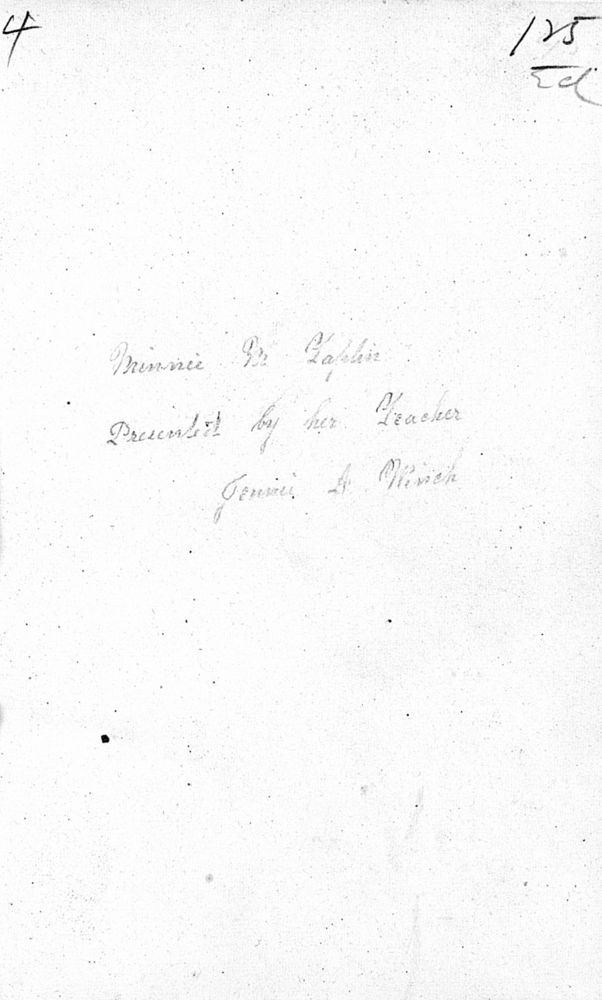 4
125
Ed
Minnie M Taplin
Presented by her Teacher
Jennie Winch